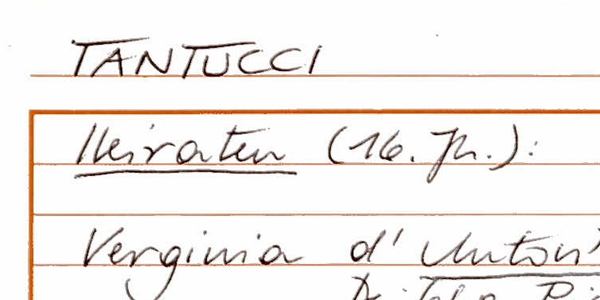 TANTUCCI
Heiraten (16. Jh.):
Verginia d'